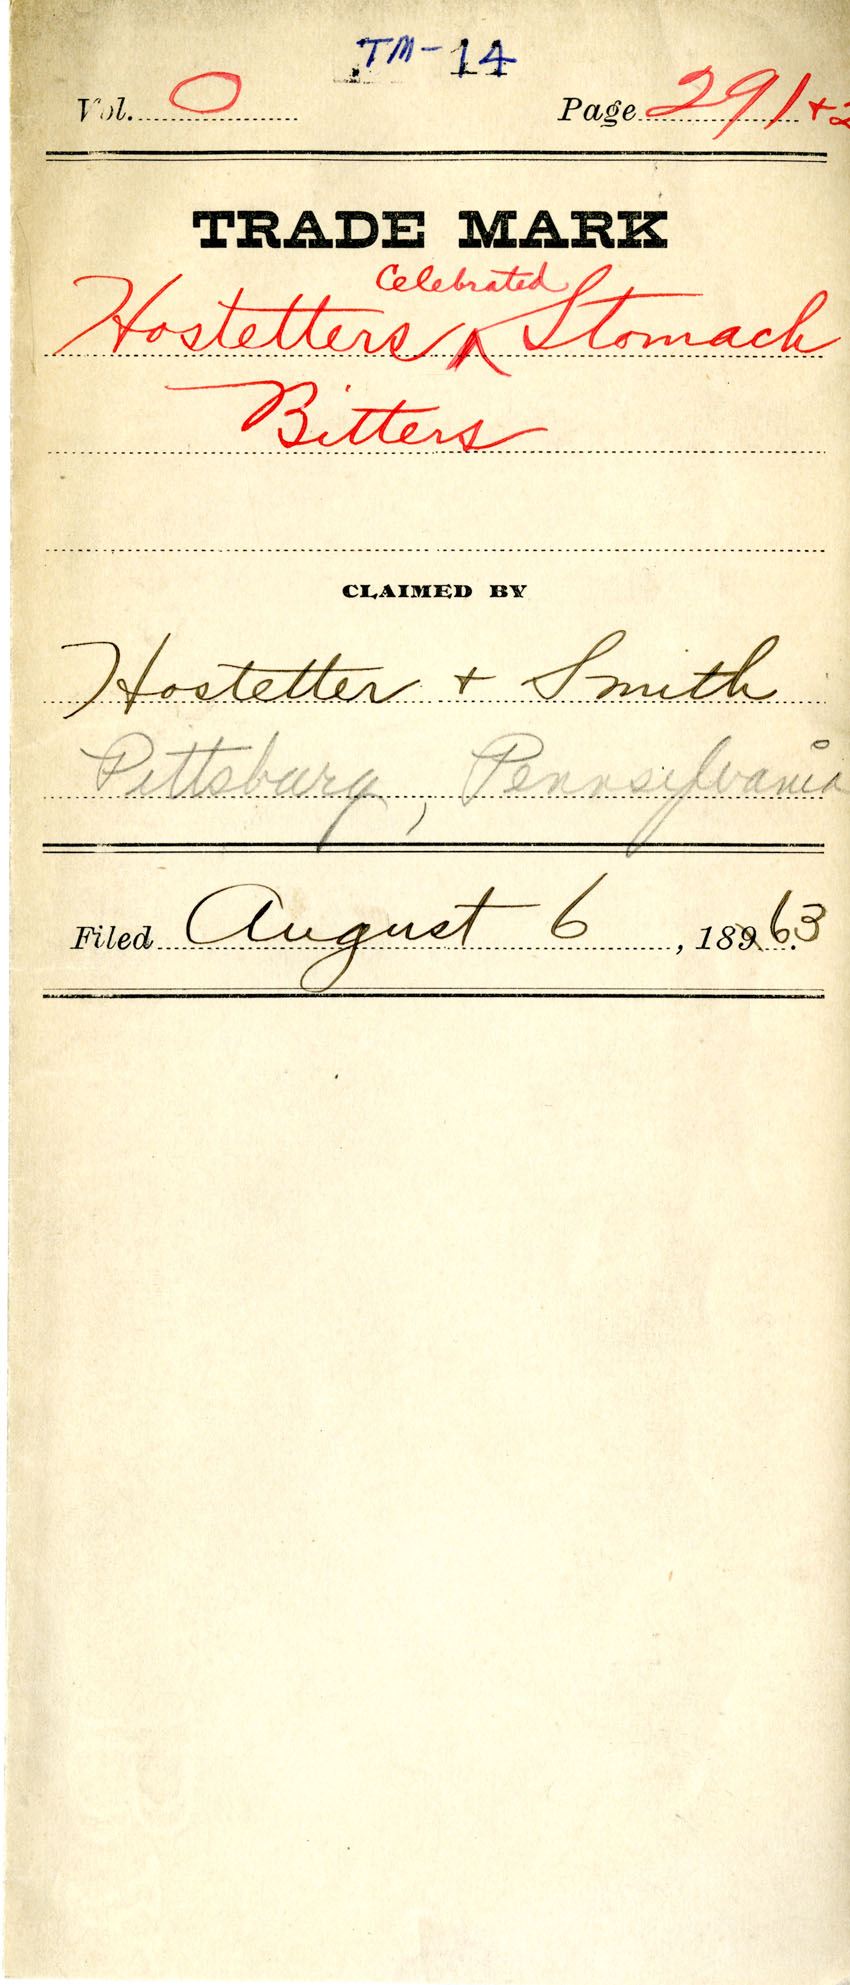 TM-14
Vol. O Page 291+2
TRADE MARK
Hostetters Celebrated Stomach
Bitters
CLAIMED BY
Hostetter + Smith
Pittsburg, Pennsylvania
Filed August 6, 1863.